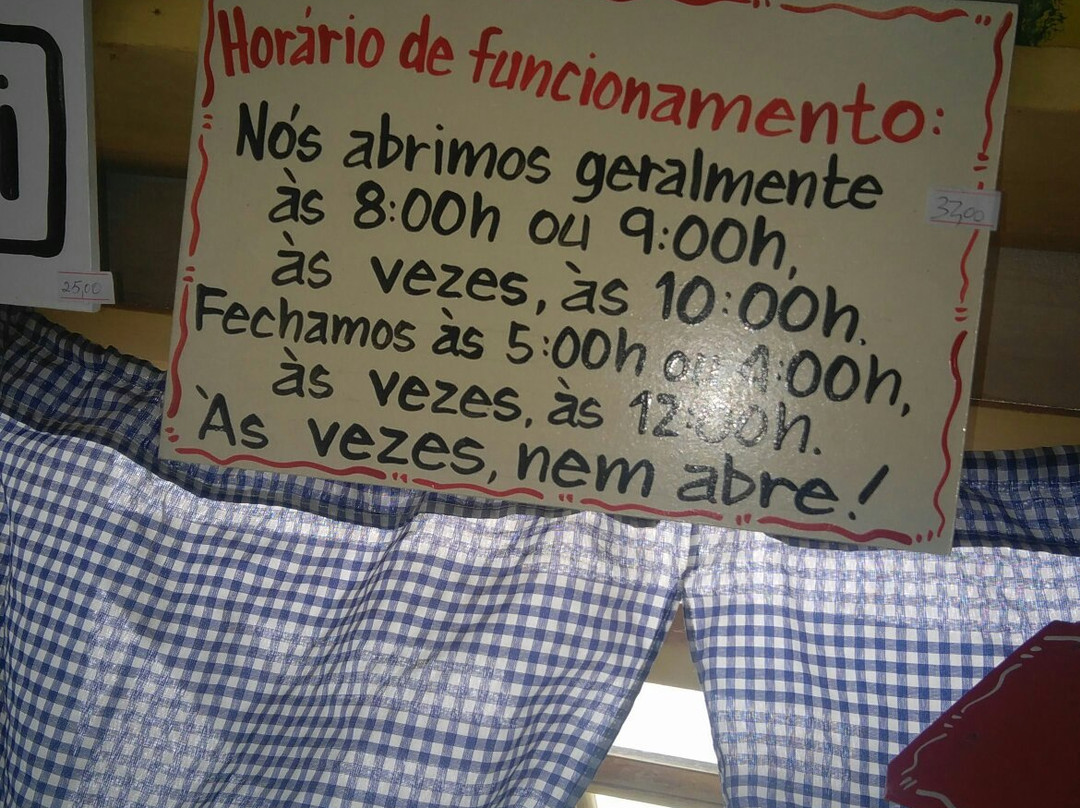 Horário de funcionamento:
Nós abrimos geralmente
às 8:00h ou 9:00h,
às vezes, às 10:00h.
Fechamos às 5:00h ou 4:00h,
às vezes, às 12:00h.
Às vezes, nem abre!
i
25,00
37,00